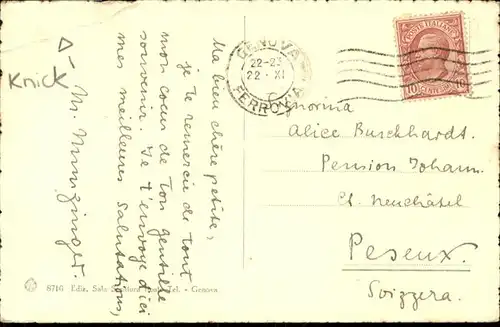 Knick
Ma bien chère petite,
je te remercie de tout
mon cœur de ton gentille
souvenir. Je t'envoye d'ici
mes meilleures salutations,
M. Munzinger.
GENOVA
22-23
22 · XI
FERROVIA
POSTE ITALIANE
10 CENTESIMI 10
Signorina
Alice Burckhardt.
Pension Johann.
Ct. Neuchâtel
Peseux.
Svizzera.
8716 Ediz. Sale Tel. - Genova